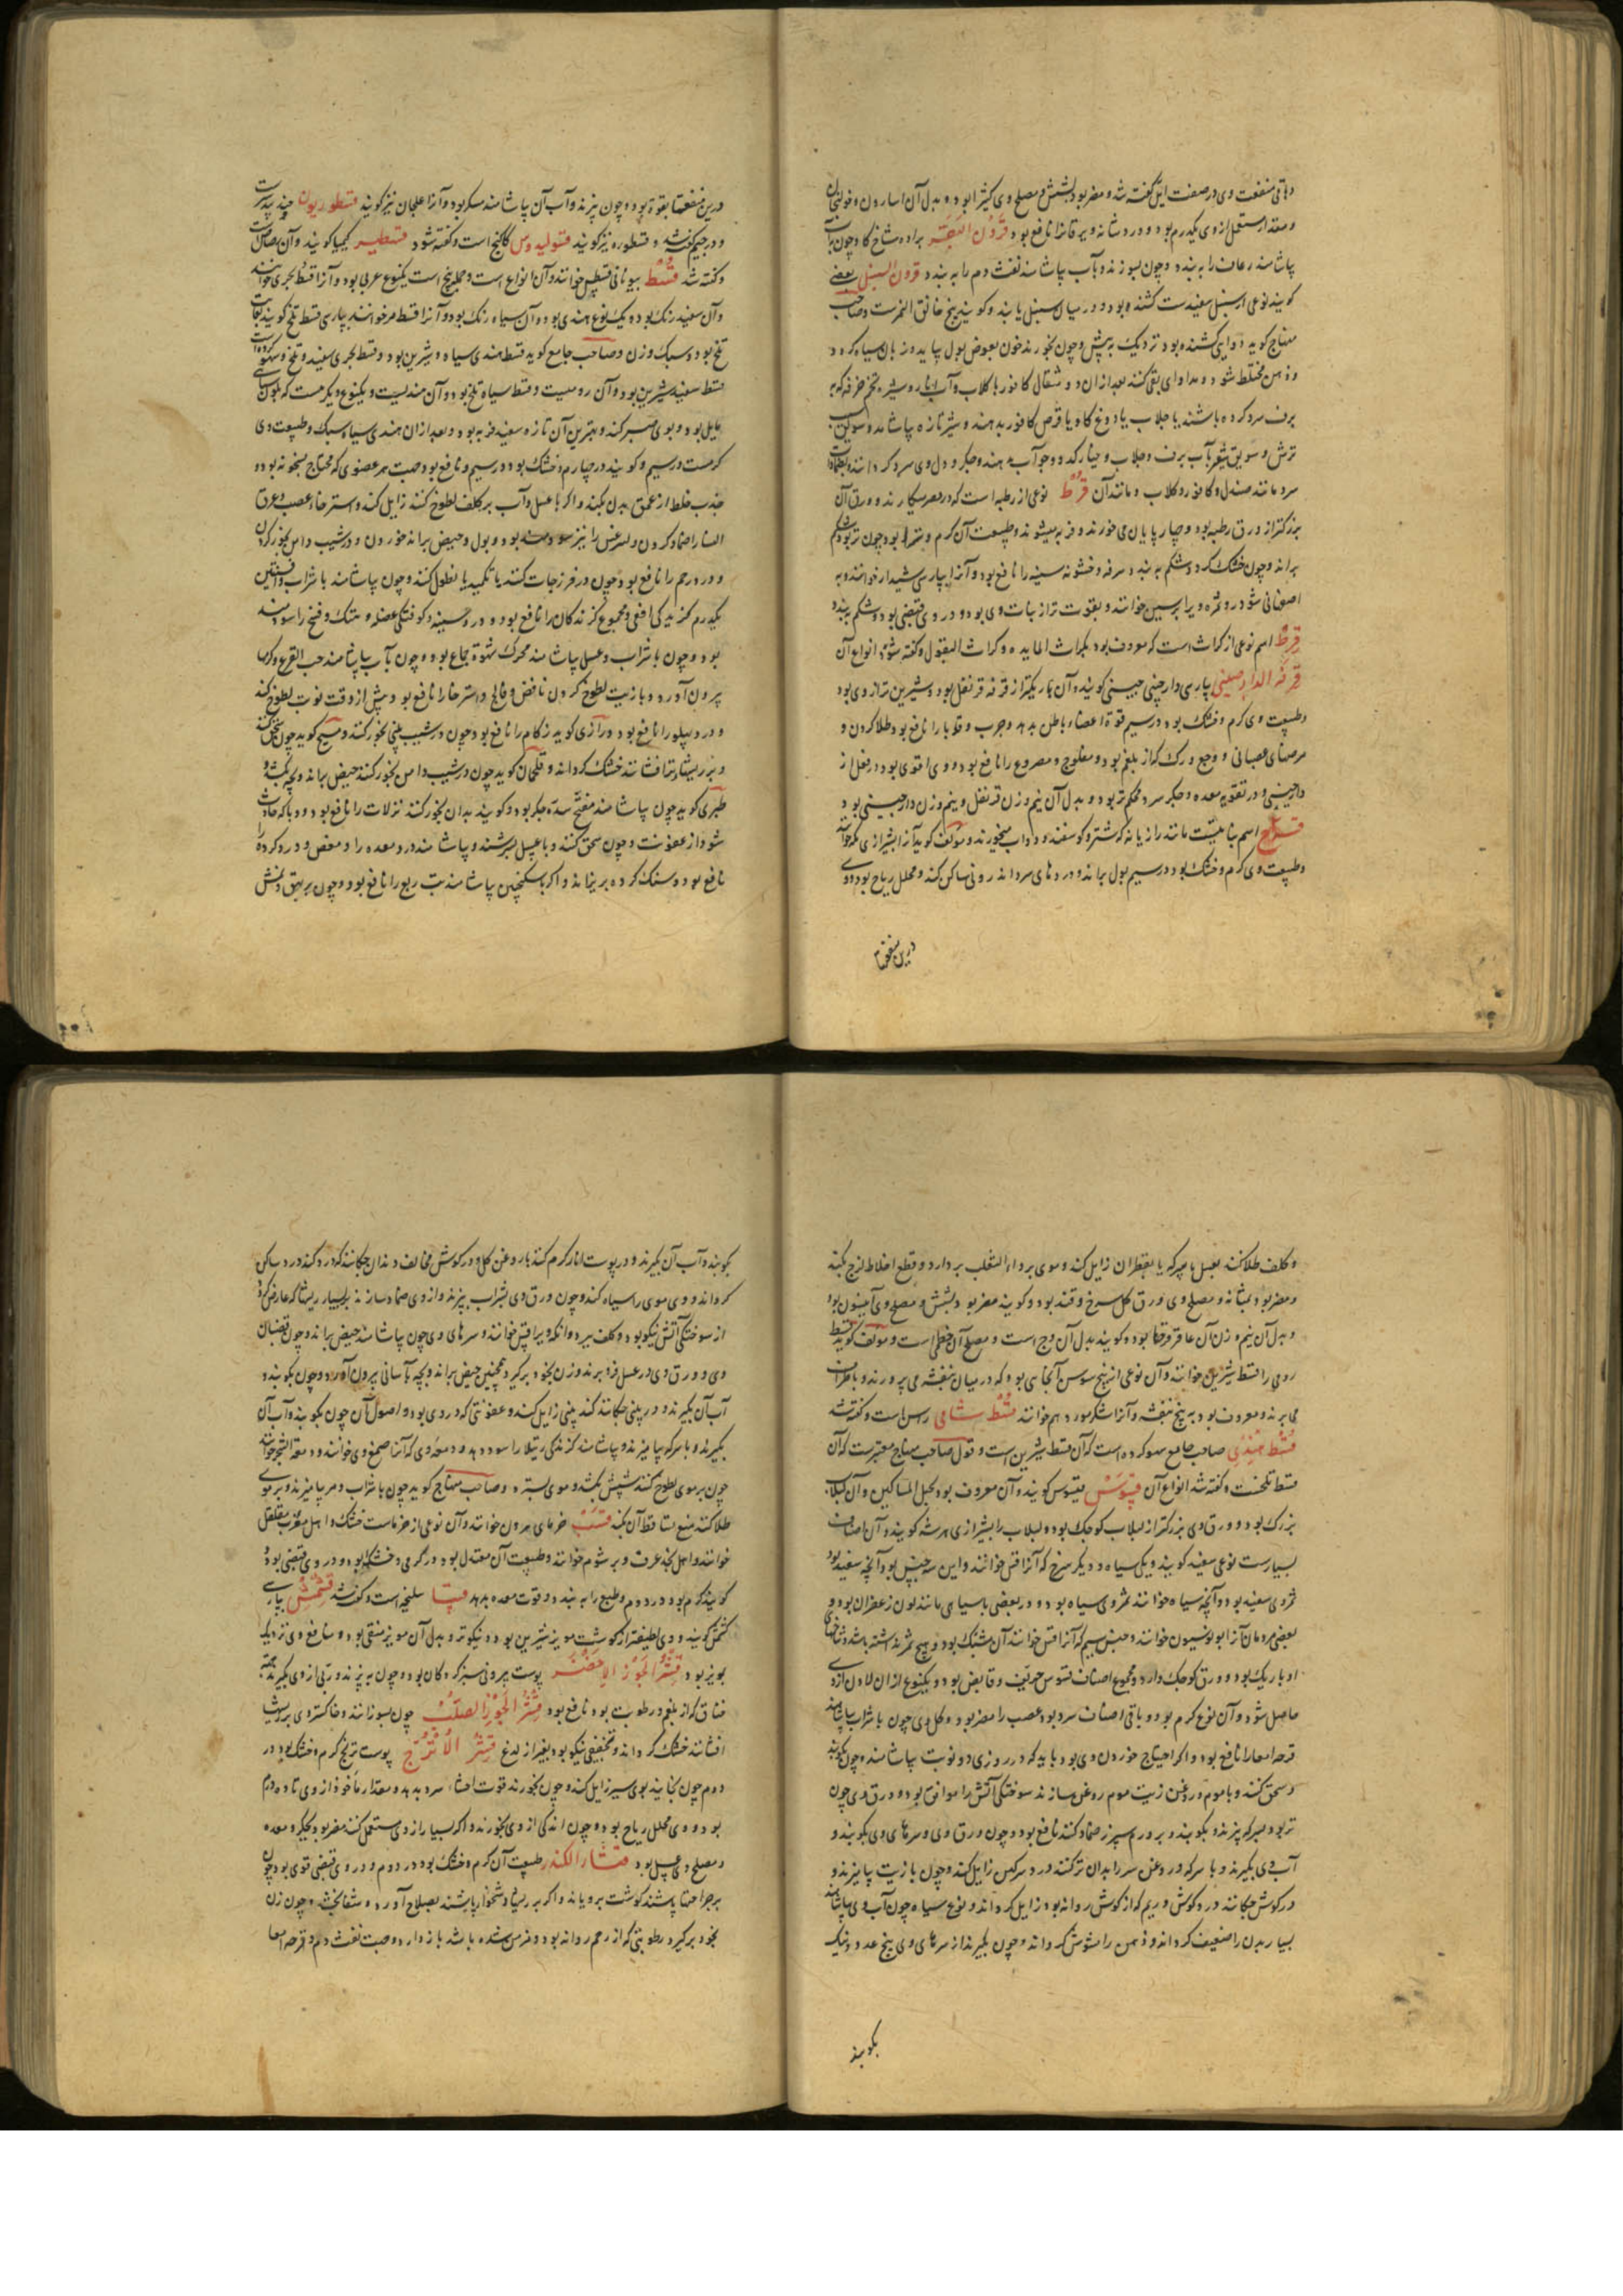 و باقی منفعت وی در صفت ایل گفته شد و مضر بود بشش و مصلح وی کثیرا بود و بدل آن اسارون و خولنجان
و مقدار مستعمل از وی یکدرم بود و درد شانه و یرقانرا نافع بود قرون البقر براده شاخ گاو چون بآب
بیاشامند رعاف را به بندد و چون بسوزند و بآب بیاشامند نفث دم را به بندد قرون السنبل بعضی
گویند نوعی از سنبل سفیدست کشنده بود و در میان سنبل یابند و گویند بیخ خانق النمرست و صاحب
منهاج گوید دوای کشنده بود نزدیک به بیش و چون بخورند خون بعوض بول بیاید و زبان سیاه گردد
و ذهن مختلط شود و مداوای بقی کنند بعد از آن دو مثقال کافور با گلاب و آب انار و شیره تخم خرفه که به
برف سرد کرده باشند یا جلاب یا دوغ گاو یا قرص کافور بدهند و شیر تازه بیاشامد و سویق سیب
ترش و سویق شعیر بآب برف و جلاب و خیار و کدو و جو آب بدهند و جگر و دل وی سرد گردانند بضمادات
سرد مانند صندل و کافور و گلاب و مانند آن قرط نوعی از رطبه است که در مصر میکارند و ورق آن
بزرکتر از ورق رطبه بود و چهارپایان می خورند و فربه میشوند و طبیعت آن گرم و تر بود چون تر بود شکم
براند و چون خشک گردد شکم به بندد و سرفه و خشونه سینه را نافع بود و آنرا بپارسی شبدر خوانند و به
اصفهانی شودر و ثمره ویرا برسین خوانند و بقوت تر از نبات وی بود و در وی قبضی بود و شکم ببندد
قرط اسم نوعی از کراث است که معروف بود بکراث المایده و کراث البقول و گفته شود انواع آن
قرفة الدارصینی بپارسی دارچینی چینی گویند و آن باریکتر از قرفه قرنفل بود و شیرین تر از وی بود
و طبیعت وی گرم و خشک بود در سیم قوة اعضاء باطن بدهد و جرب و قوبا را نافع بود طلا کردن و
مرضهای عصبانی و وجع ورک که از بلغم بود و مفلوج و مصروع را نافع بود و وی اقوی بود در فعل از
دارچینی و در تقویه معده و جگر سرد محکمتر بود و بدل آن نیم وزن قرنفل و نیم وزن دارچینی بود
قزاح اسم نباتیست مانند رازیانه که شتر و گوسفند و دواب میخورند و مولف گوید آنرا بشیرازی کمه خوانند
و طبیعت وی گرم و خشک بود در سیم بول براند و دردهای سرد اندرونی ساکن کند و محلل ریاح بود و وی
درین منفعتها
درین منفعتها بقوة بود و چون بپزند و آب آن بیاشامند مسکر بود و آنرا علجان نیز گویند قسطوریون جند بیدست
و در جیم گفته شد و قسطوره نیز گویند قسولیدوس کاکنج است و گفته شود قسطیر کیمیا گویند و آن رصاص است
و گفته شد قسط بیونانی قسطس خوانند و آن انواع است و جمله بیخ است یکنوع عربی بود و آنرا قسط بحری خوانند
و آن سفید رنگ بود و یک نوع هندی بود و آن سیاه رنگ بود و آنرا قسط مر خوانند بپارسی قسط تلخ گویند بغایت
تلخ بود و سبک وزن و صاحب جامع گوید قسط هندی سیاه و شیرین بود و قسط بحری سفید و تلخ و سهو کرده است
قسط سفید شیرین بود و آن رومیست و قسط سیاه تلخ بود و آن هندیست و یکنوع دیگر هست که بلون سیاهی
مایل بود و بوی صبر کند و بهترین آن تازه سفید فربه بود و بعد از آن هندی سیاه سبک و طبیعت وی
گرمست در سیم و گویند در چهارم و خشک بود در سیم و نافع بود جهت هر عضوی که محتاج بسخونه بود و
جذب خلط از عمق بدن بکند و اگر با عسل و آب بر کلف لطوخ کنند زایل کند و استرخاء عصب و عرق
النسا را ضماد کردن و لرزیدن را نیز سودمند بود و بول و حیض براند خوردن و در شیب دامن بخور کردن
و درد رحم را نافع بود چون در فرزجات کنند یا تکمید یا نطول کنند و چون بیاشامند با شراب و افسنتین
یکدرم گزیدگی افعی و مجموع گزندگان را نافع بود و درد سینه و کوفتگی عضله و هتک و فسخ را سودمند
بود و چون با شراب و عسل بیاشامند محرک شهوة جماع بود و چون بآب بیاشامند حب القرع و کرمها
بیرون آورد و با زیت لطوخ کردن نافض و فالج و استرخا را نافع بود و پیش از وقت نوبت لطوخ کنند
و درد پهلو را نافع بود و رازی گوید زکام را نافع بود چون در شیب بینی بخور کنند و مسیح گوید چون سحق کنند
و بر ریشهاء تر افشانند خشک گرداند و قلهمان گوید چون در شیب دامن بخور کنند حیض براند و بچه بکشد و
طبری گوید چون بیاشامند مفتح سده جگر بود و گویند بدان بخور کنند نزلات را نافع بود و وبا که حادث
شود از عفونت و چون سحق کنند و با عسل بسرشند و بیاشامند درد معده را و مغص و درد گرده را
نافع بود و سنگ گرده بریزاند و اگر با سکنجبین بیاشامند تب ربع را نافع بود و چون بر بهق و نمش
و کلف طلا کنند بعسل یا سرکه یا بقطران زایل کند و موی بر داء الثعلب بر دارد و قطع اخلاط لزج بکند
و مضر بود بمثانه و مصلح وی ورق گل سرخ و قند بود و گویند مضر بود بشش و مصلح وی انیسون بود
و بدل آن نیم وزن آن عاقرقرحا بود و گویند بدل آن وج است و مصلح آن خطمی است و مولف گوید قسط
رومی را قسط شیرین خوانند و آن نوعی از بیخ سوس آنجایی بود که در میان بنفشه می پرورند و باطراف
می برند و معروف بود به بیخ بنفشه و آنرا شکر مورد هم خوانند قسط شامی راسن است و گفته شد
قسط هندی صاحب جامع سهو کرده است که آن قسط شیرین است و قول صاحب منهاج معتبرست که آن
قسط تلخست و گفته شد انواع آن قسوس قیسوس گویند و آن معروف بود بحبل المساکین و آن لبلاب
بزرگ بود و ورق وی بزرکتر از لبلاب کوچک بود و لبلاب را بشیرازی هرشه گویند و آن اصناف
بسیارست نوعی سفید گویند و یکی سیاه و دیگر سرخ که آنرا قس خوانند و این سه جنس بود آنچه سفید بود
ثمر وی سفید بود و آنچه سیاه خوانند ثمر وی سیاه بود و در بعضی بسیاهی مانند لون زعفران بود و
بعضی مردمان آنرا بولونسیون خوانند و جنس سیم که آنرا قس خوانند آن مشبک بود و هیچ ثمر نداشته باشد و شاخهای
او باریک بود و ورق کوچک دارد و مجموع اصناف قسوس حریف و قابض بود و یکنوع از آن لاذن از وی
حاصل شود و آن نوع گرم بود و باقی اصناف سرد بود عصب را مضر بود و گل وی چون با شراب بیاشامند
قرحه امعا را نافع بود و اگر احتیاج خوردن وی بود باید که در روزی دو نوبت بیاشامند و چون بکوبند
و سحق کنند و با موم و روغن زیت موم روغن سازند سوختگی آتش را موافق بود و ورق وی چون
تر بود بسرکه بپزند و بکوبند و بر ورم سپرز ضماد کنند نافع بود و چون ورق وی و سرهای وی بکوبند و
آب وی بگیرند و با سرکه و روغن سر را بدان تر کنند درد سر کهن زایل کند و چون با زیت بیامیزند و
در گوش چکانند درد گوش و ریم که از گوش روانه بود زایل گرداند و نوع سیاه چون آب وی بیاشامند
بسیار بدن را ضعیف گرداند و ذهن را مشوش گرداند و چون بگیرند از سرهای وی پنج عدد و نیک
بکوبند
بکوبند و آب آن بگیرند و در پوست انار گرم کنند با روغن گل و در گوش مخالف دندان چکانند که درد کند درد ساکن
گرداند و وی موی را سیاه کند و چون ورق وی بشراب بپزند و از وی ضماد سازند بر بسیار ریشها که عارض شود
از سوختگی آتش نیکو بود و کلف ببرد و آنکه ویرا قس خوانند و سرهای وی چون بیاشامند حیض براند و چون قضبان
وی و ورق وی در عسل فرو برند و زن بخود برگیرد همچنین حیض براند و بچه بآسانی بیرون آورد و چون بکوبند و
آب آن بگیرند و در بینی چکانند گند بینی زایل کند و عفونتی که در وی بود و اصول آن چون بکوبند و آب آن
بگیرند و با سرکه بیامیزند و بیاشامند گزندگی رتیلا را سود دهد و دمعه وی که آنرا صمغ وی خوانند و دمعة الشجر خوانند
چون بر موی لطوخ کنند شپش بکشد و موی بسترد و صاحب منهاج گوید چون با شراب و مر بیامیزند و بر موی
طلا کنند منع تساقط آن بکند قسب خرمای هیرون خوانند و آن نوعی از خرماست خشک و اهل مغرب مقلقل
خوانند و اهل نجد عرف و برشوم خوانند و طبیعت آن معتدل بود در گرمی و خشک بود و در وی قبضی بود و
گویند گرم بود در دوم و طبع را به بندد و قوت معده بدهد قسیا سلیخه است و گفته شد قشمش بپارسی
کشمش گویند و وی لطیفتر از گوشت مویز شیرین بود و نیکوتر و بدل آن مویز منقی بود و منافع وی نزدیک
بمویز بود قشر الجوز الاخضر پوست بیرونی سبز گردکان بود و چون به بپزند و ربی از وی بگیرند جهت
خناق که از بلغم و رطوبت بود نافع بود قشر الجوز الصلب چون بسوزانند و خاکستر وی بر ریشها
افشانند خشک گرداند و تجفیفی نیکو بود بغیر از لدغ قشر الاترج پوست ترنج گرم و خشک بود در
دوم چون بخایند بوی سیر زایل کند و چون بخورند قوت احشاء سرد بدهد و مقدار ماخوذ از وی تا ده درم
بود و وی محلل ریاح بود و چون اندکی از وی بخورند و اگر بسیار از وی مستعمل کنند مضر بود بجگر و معده
و مصلح وی عسل بود قشار الکندر طبیعت آن گرم و خشک بود در دوم و در وی قبضی قوی بود چون
بر جراحتها پاشند گوشت برویاند و اگر بر ریشها و شخوار پاشند بصلاح آورد و شفا بخشد و چون زن
بخود برگیرد رطوبتی که از رحم روانه بود و مزمن شده باشد باز دارد و جهت نفث دم و قرحه امعا